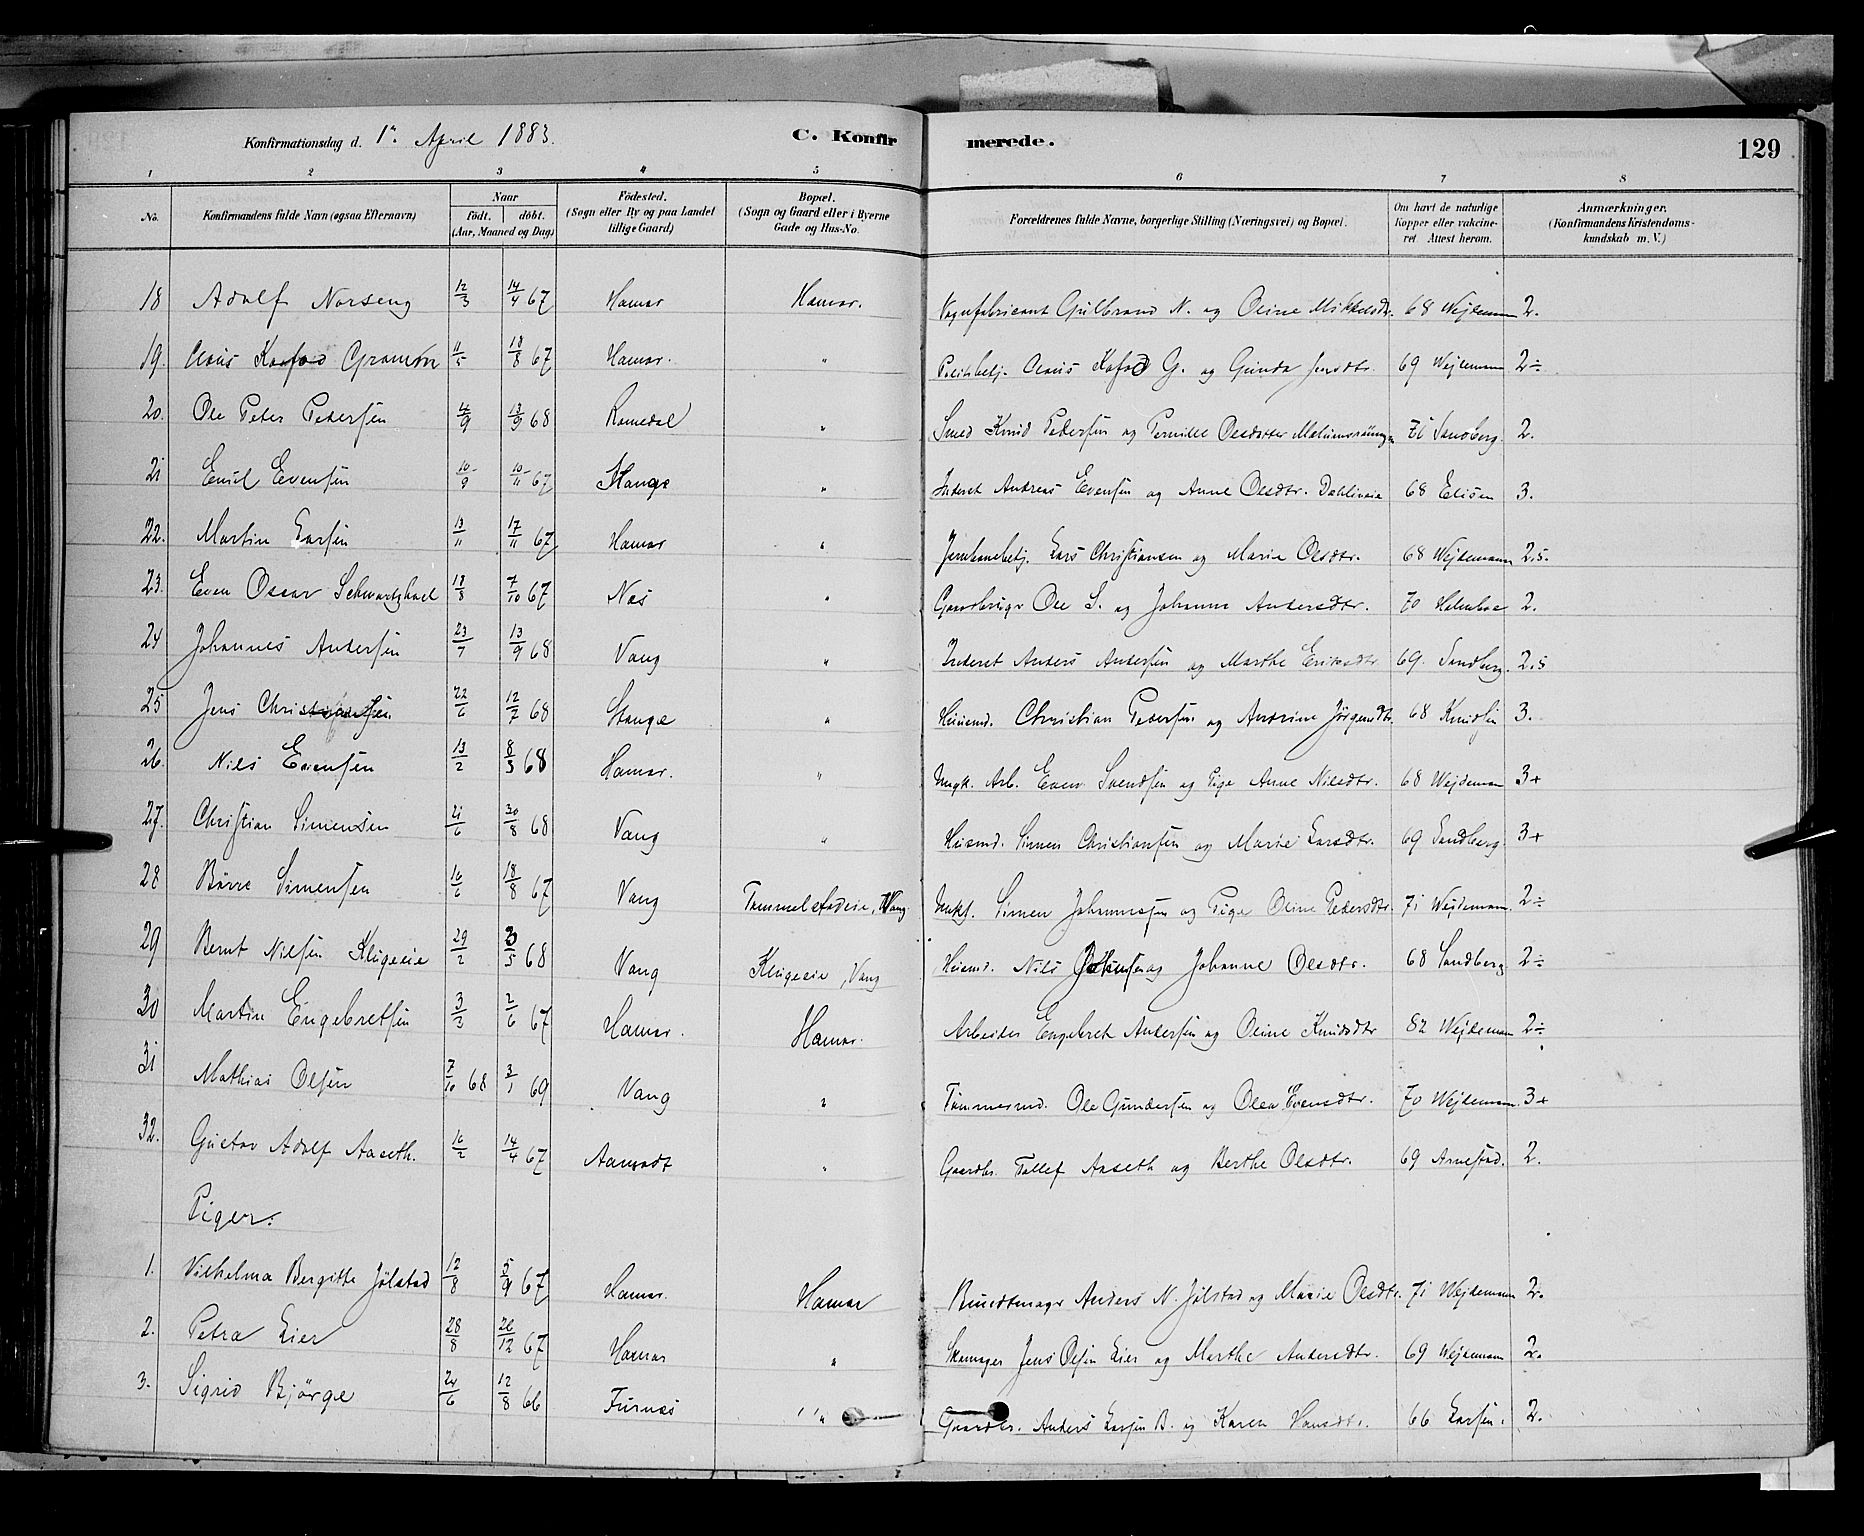 Konfirmationsdag d. 1ṅ April 1883. C. Konfirmerede. 129
1 2 3 4 5 6 7 8
No. Konfirmandens fulde Navn (ogsaa Efternavn) Naar født. døbt. (Aar, Maaned og Dag) Fødested. (Sogn eller By og paa Landet tillige Gaard) Bopæl. (Sogn og Gaard eller i Byerne Gade og Hus-No. Forældrenes fulde Navne, borgerlige Stilling (Næringsvei) og Bopæl. Om havt de naturlige Kopper eller vakcineret Attest herom. Anmærkninger. (Konfirmandens Kristendomskundskab m. V.)
18 Adolf Norseng 12/3 14/4 67 Hamar Hamar. Vognfabricant Gulbrand N. og Oline Mikkelsdtr. 68 Wejdemann 2.
19. Claus Kofod Gramm 11/5 18/8 67 Hamar. " Politibetj. Claus Kofod G. og Gunda Jensdtr. 69 Wejdemann 2÷
20. Ole Peter Pedersen 4/9 13/9 68 Romedal " Smed Knud Pedersen og Pernille Olsdatter 71 Sandberg. 2.
21 Emil Evensen 10/9 10/11 67 Stange " Inderst Andreas Evensen og Anne Olsdtr. 68 Elisen 3.
22. Martin Larsen 13/11 17/11 67 Hamar " Jernbanebetj. Lars Christiansen og Marie Olsdtr. 68 Wejdemann 2.5.
23. Even Oscar 18/8 7/10 67 Nes " Gaardbruger Ole S. og Johanne Andersdtr. 70 Holmboe 2.
24 Johannes Andersen 23/7 13/9 68 Vang " Inderst Anders Andersen og Marthe Eriksdtr 69. Sandberg. 2.5
25 Jens Christiansen 22/6 12/7 68 Stange " Huusmd. Christian Pedersen og Andrine Jörgensdtr. 68 Knudsen 3.
26. Nils Evensen 13/2 8/3 68 Hamar. " Ungk. Arb. Even Svendsen og Pige Anne Nilsdtr. 68 Wejdeman 3+
27. Christian Simensen 21/6 30/8 68 Vang " Huusmd. Simen Christiansen og Marie Larsdtr. 69 Sandberg. 3+
28 Börre Simensen 16/6 18/8 67 Vang Tommelstadeie, Vang Ungk. Simen Johannesen og Pige Oline Pedersdtr. 71 Wejdemann. 2÷
29 Bernt Nilsen Kligeeie 29/2 3/5 68 Vang Kligeeie, Vang Huusmd. Nils Johnsen og Johanne Olsdtr. 68 Sandberg 2÷
30 Martin Engebretsen 3/3 2/6 67 Hamar. Hamar. Arbeider Engebret Andersen og Oline Knudsdtr 82 Wejdeman 2÷
31 Mathias Olsen 7/10 68 3/1 69 Vang " Tømmermd. Ole Gundersen og Olea Evensdtr. 70 Wejdemann. 3+
32. Gustav Adolf Aaseth. 16/2 14/4 67 Aamodt " Gaardbr. Tollef Aaseth og Berthe Olsdtr. 69 Arnestad. 2.
Piger.
1. Vilhelma Bergitte Jölstad 12/8 5/9 67 Hamar. Hamar Bundtmager Anders N. Jölstad og Marie Olsdtr. 71 Wejdemann 2.
2. Petra Lier 28/8 26/12 67 Hamar " Skomager Jens Olsen Lier og Marthe Andersdtr. 69 Wejdemann 2.
3. Sigrid Bjørge 24/6 12/8 66 Furnæs " Gaardbr. Anders Larsen B. og Karen Hansdtr. 66 Larsen. 2.